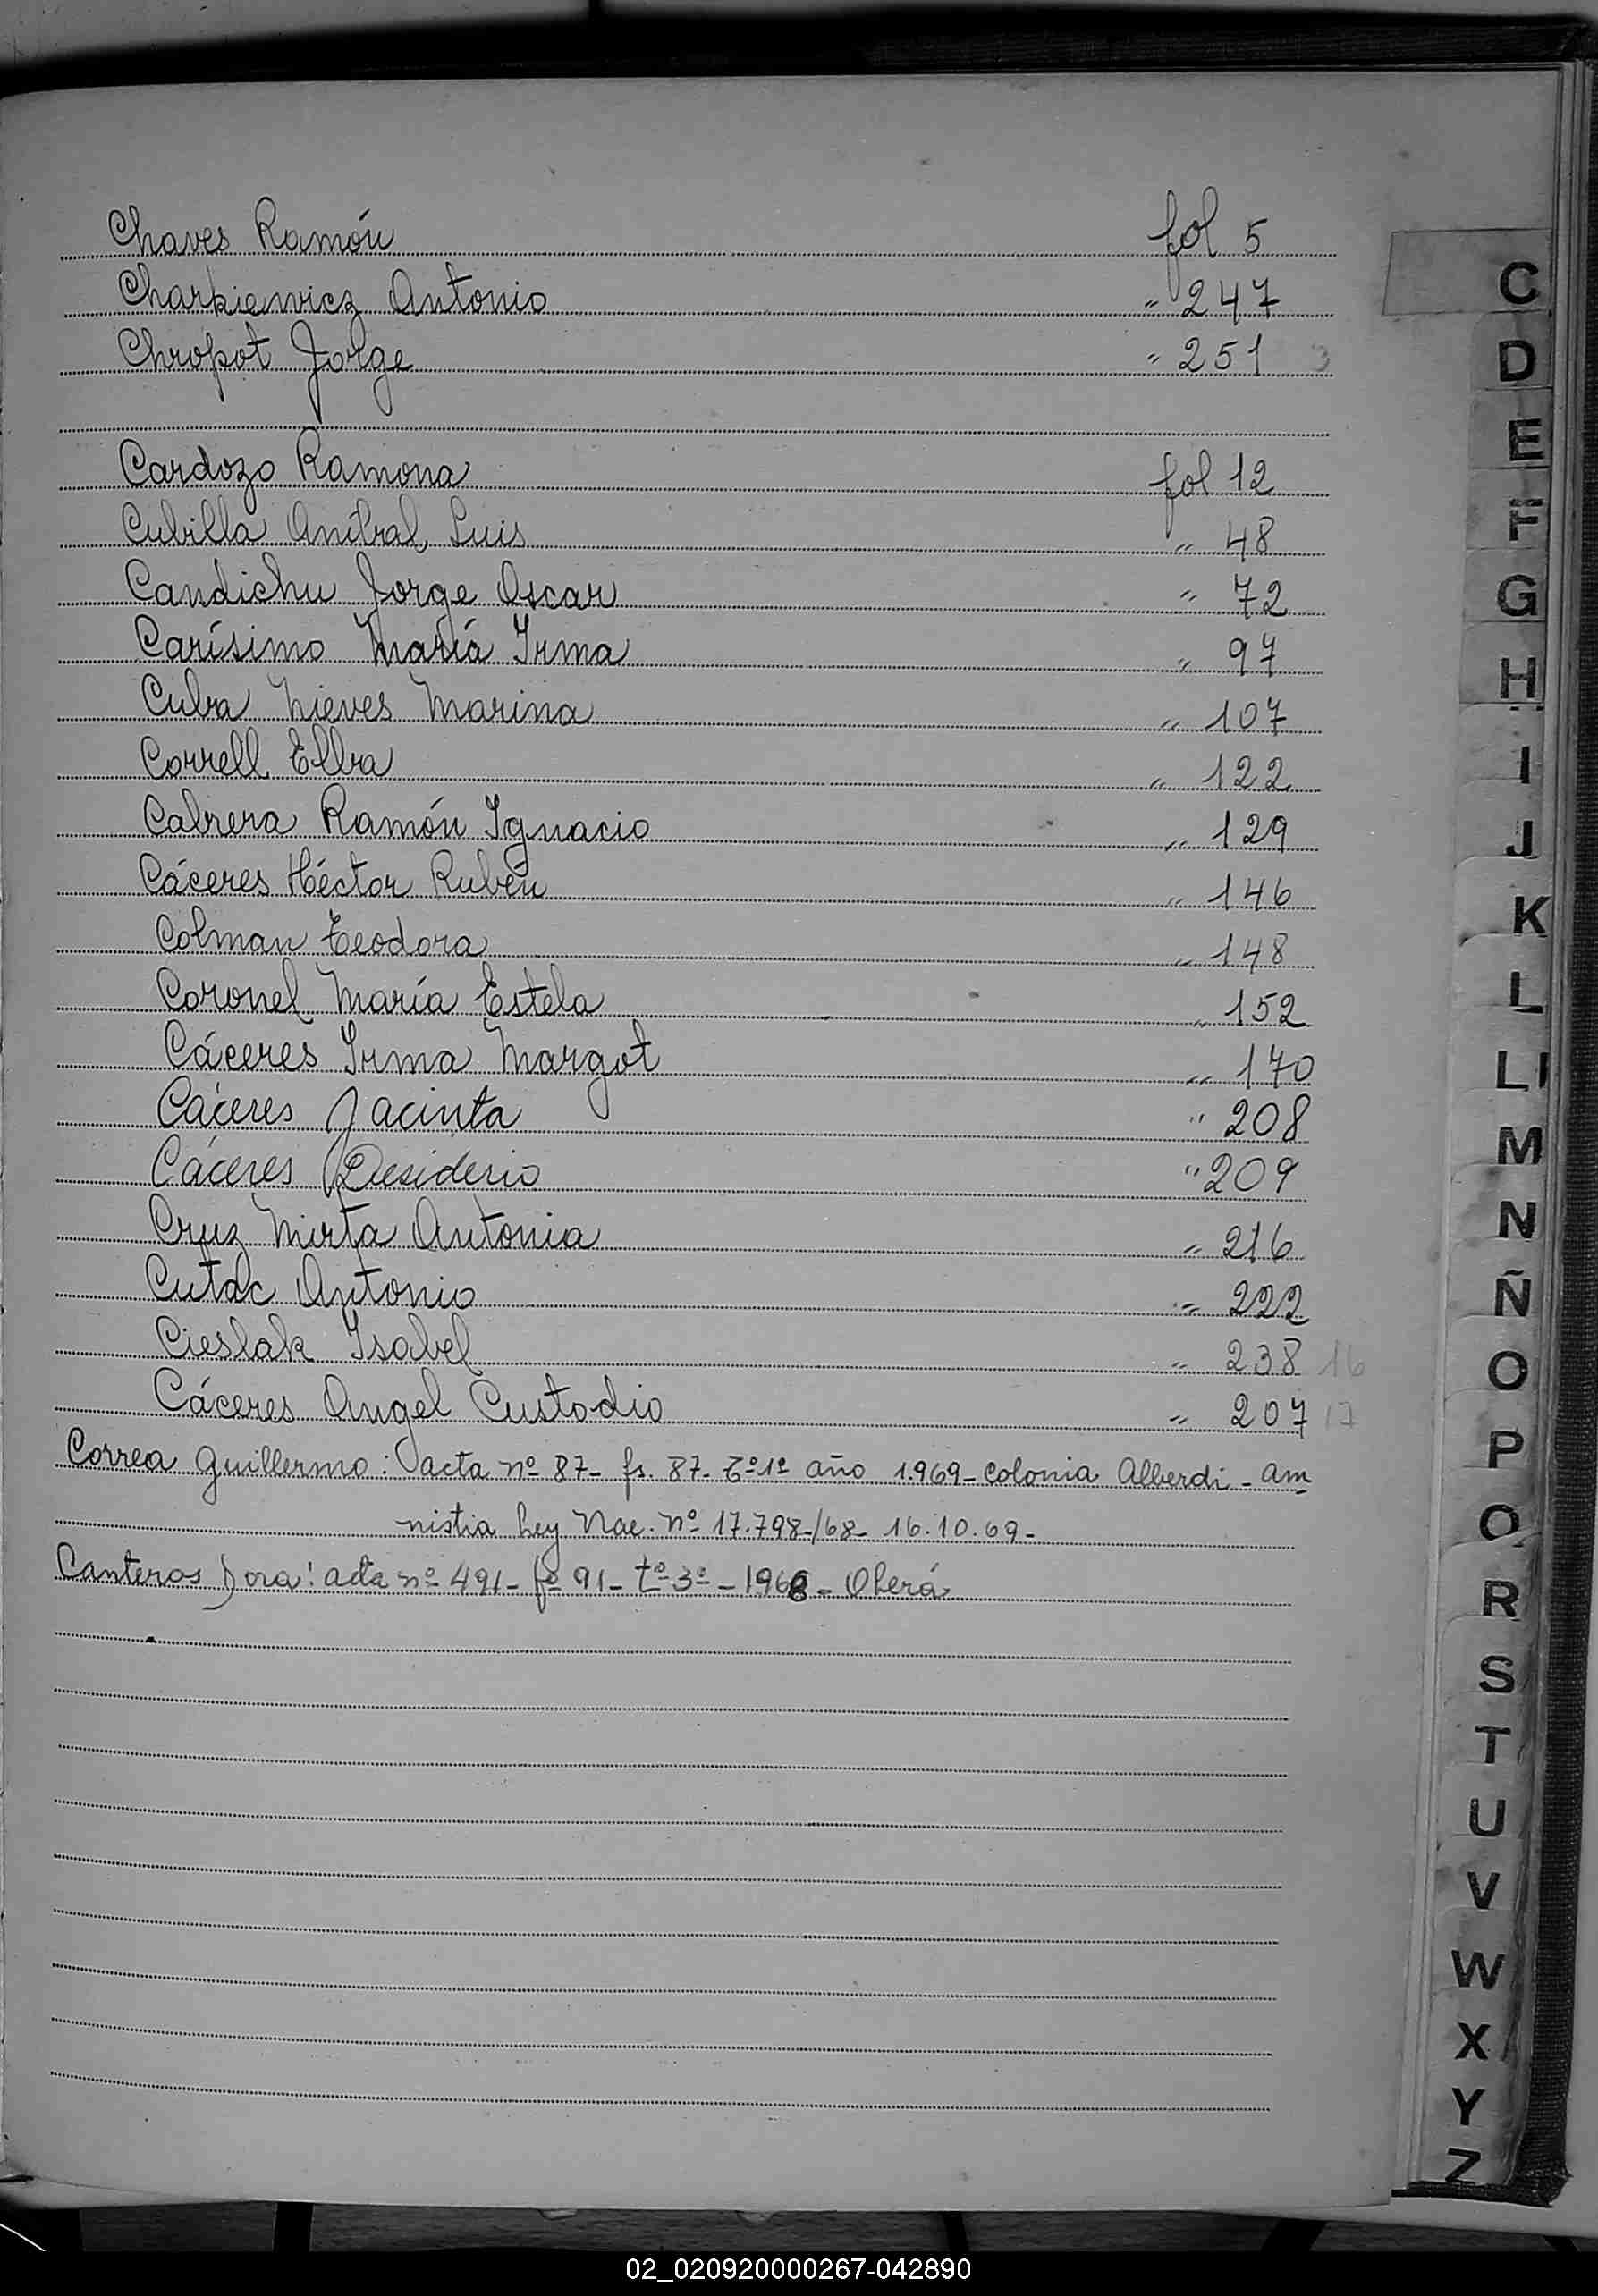 Chaves Ramón fol 5
Charkiewicz Antonio " 247
Chropot Jorge " 251 3
Cardozo Ramona fol 12
Cubilla Aníbal Luis " 48
Candichu Jorge Oscar " 72
Carísimo María Irma " 97
Cuba Nieves Marina " 107
Correll Elba " 122
Cabrera Ramón Ignacio " 129
Cáceres Héctor Rubén " 146
Colman Teodora " 148
Coronel María Estela " 152
Cáceres Irma Margot " 170
Cáceres Jacinta " 208
Cáceres Desiderio " 209
Cruz Mirta Antonia " 216
Cutac Antonio " 222
Cieslak Isabel " 238 16
Cáceres Angel Custodio " 207 17
Correa Guillermo: acta nº 87- fs. 87- Tº1º año 1.969- Colonia Alberdi - am-
nistia Ley Nac. Nº 17.798-/68- 16.10.69-
Canteros Dora: acta nº 491- fº 91- tº 3º - 1968- Oberá
C
D
E
F
G
H
I
J
K
L
Ll
M
N
Ñ
O
P
Q
R
S
T
U
V
W
X
Y
Z
02_020920000267-042890